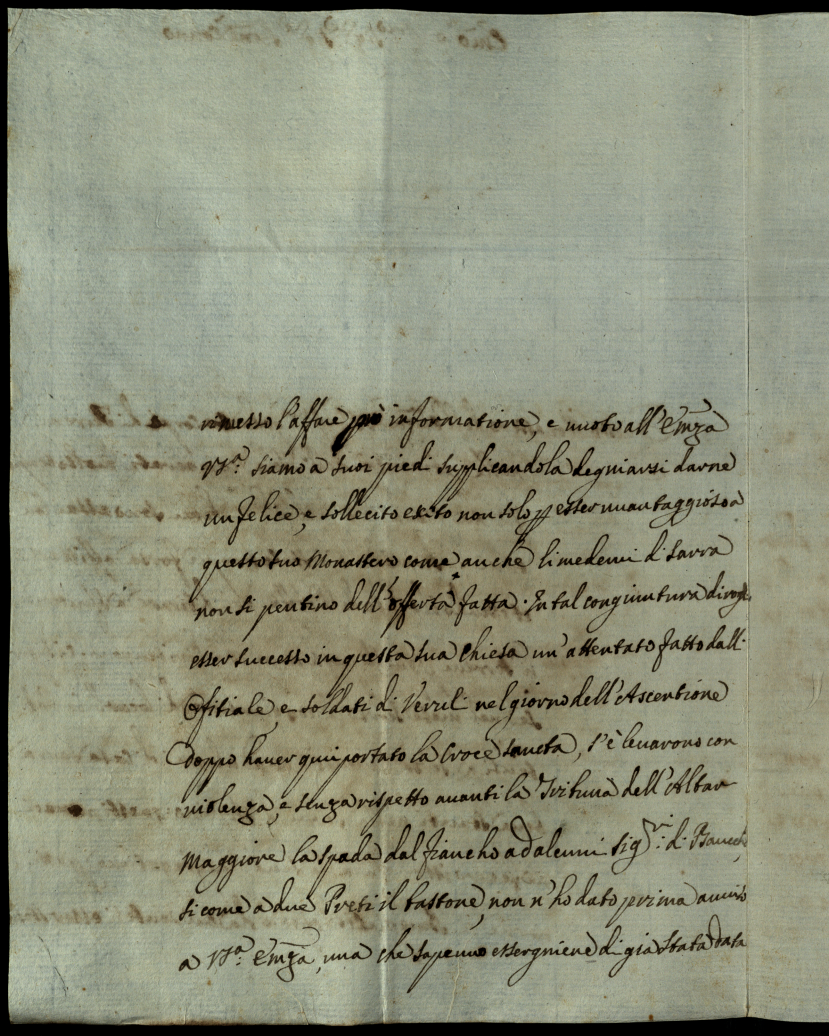 rimesso l'affare più informatione, e uuoto all' Emza
Vra. siamo a suoi piedi supplicandola degniarsi darne
un felice, e sollecito exito non solo p esser uuantaggioso a
questo suo Monastero come anche li medemi di Sarra
non si pentino dell' offerta fatta. In tal congiuntura
esser successo in questa sua Chiesa un' attentato fatto dall'
Ofitiale, e soldati di Veruli nel giorno dell' Ascentione
doppo hauer qui portato la Croce Sancta, s' è leuarono con
uiolenza, e senza rispetto auanti la Tribuna dell' Altar
Maggiore la spada dal fiancho ad alcuni sigri. di
si come a due Preti il bastone, non n' ho dato prima auuiso
a Vra. Emza, ma che sapeuo essergniene di già stata data